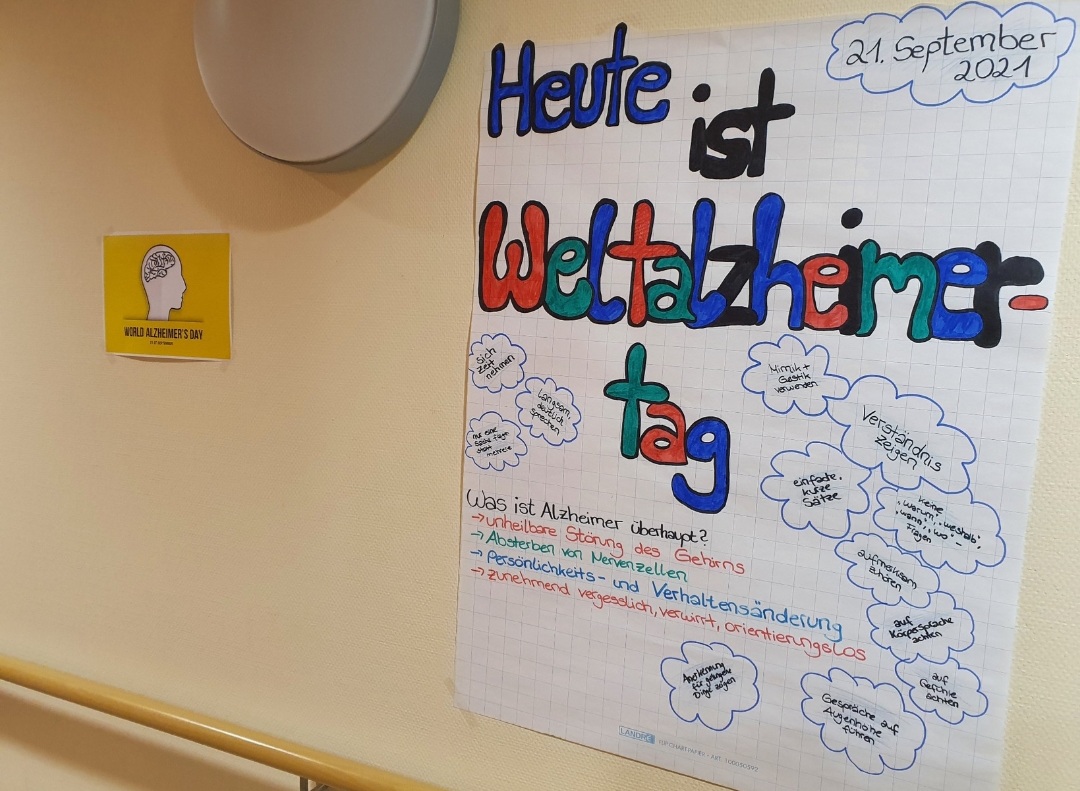 21. September
2021
Heute
ist
Weltalzheimer-
tag
WORLD ALZHEIMER'S DAY
Sich
Zeit
nehmen
Langsam,
deutlich
sprechen
nur eine
statt mehrere
Mimik +
Gestik
verwenden
Verständnis
zeigen
einfache,
kurze
Sätze
keine
"warum", "weshalb",
"wann", "wo" -
Fragen
aufmerksam
zuhören
auf
Körpersprache
achten
auf
Gefühle
achten
Was ist Alzheimer überhaupt?
→ unheilbare Störung des Gehirns
→ Absterben von Nervenzellen
→ Persönlichkeits- und Verhaltensänderung
→ zunehmend vergesslich, verwirrt, orientierungslos
Anerkennung
für gelungene
Dinge zeigen
Gespräche auf
Augenhöhe
führen
LANDRÉ
FLIPCHARTPAPIER / ART. 100050592